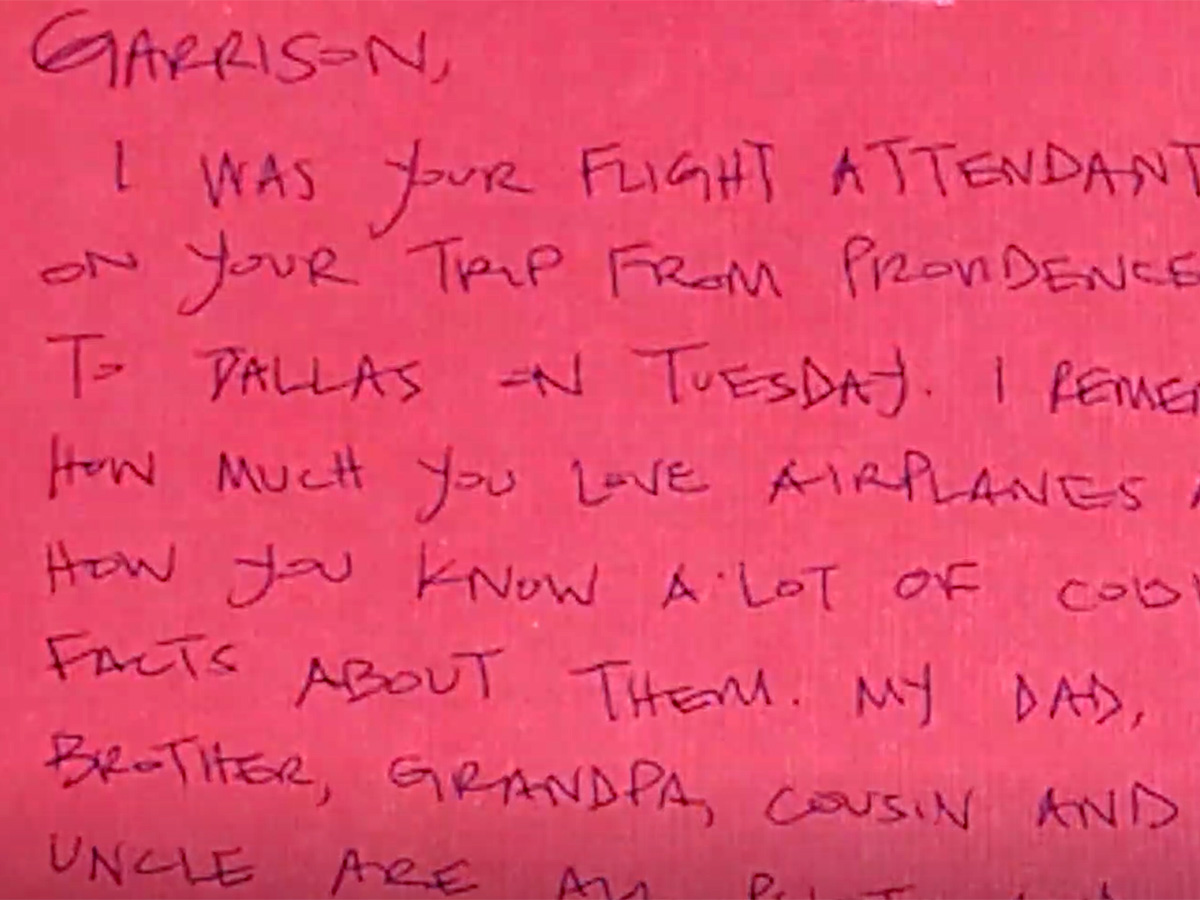 GARRISON,
I WAS YOUR FLIGHT ATTENDANT
ON YOUR TRIP FROM PROVIDENCE
TO DALLAS ON TUESDAY. I REMEM
HOW MUCH YOU LOVE AIRPLANES
HOW YOU KNOW A LOT OF COOL
FACTS ABOUT THEM. MY DAD,
BROTHER, GRANDPA, COUSIN AND
UNCLE ARE ALL